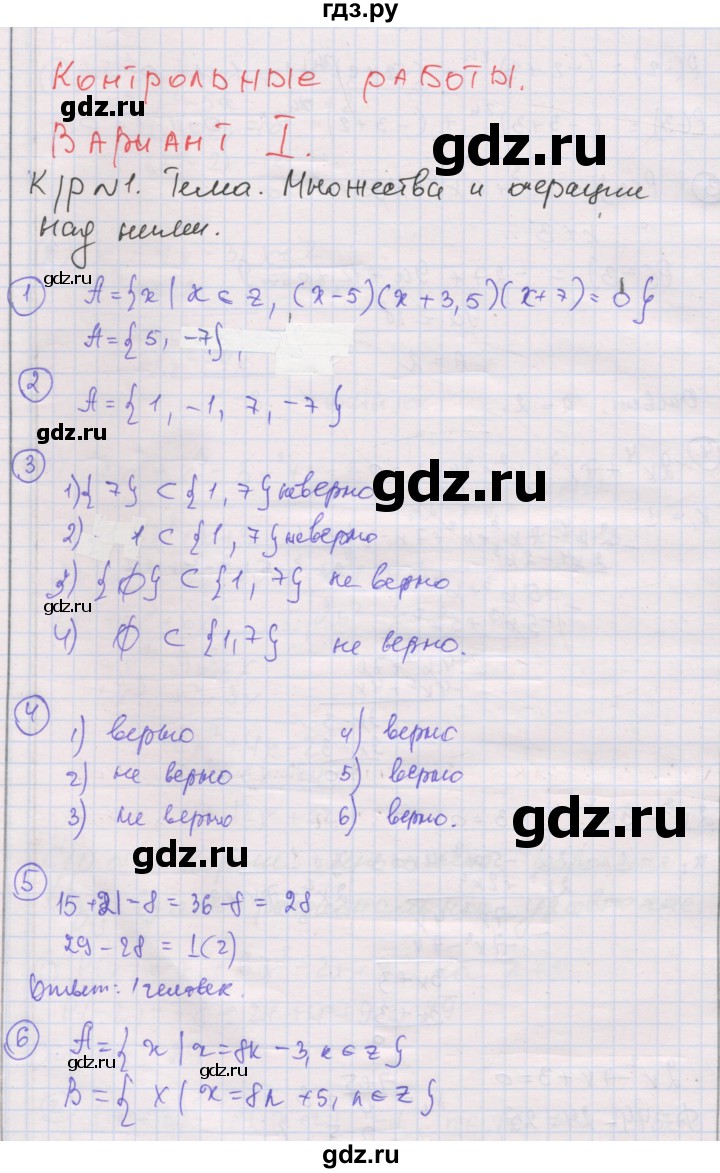 гдз.ру
Контрольные работы.
Вариант I.
К/р №1. Тема. Множества и операции
над ними.
1 A={x | x ∈ z, (x-5)(x+3,5)(x+7)=0}
A={5, -7}
2 A={1, -1, 7, -7}
3
1) {7} ⊂ {1, 7} неверно
2) 1 ⊂ {1, 7} неверно
3) {Ø} ⊂ {1, 7} не верно
4) Ø ⊂ {1,7} не верно.
4
1) верно 4) верно
2) не верно 5) верно
3) не верно 6) верно.
5
15+21-8=36-8=28
29-28=1(2)
Ответ: 1 человек.
6 A={x | x=8k-3, k∈z}
B={x | x=8n+5, n∈z}
gdz.ru
gdz.ru
gdz.ru
gdz.ru
gdz.ru
gdz.ru
gdz.ru
gdz.ru
gdz.ru
gdz.ru
gdz.ru
gdz.ru
gdz.ru
gdz.ru
гдз.ру